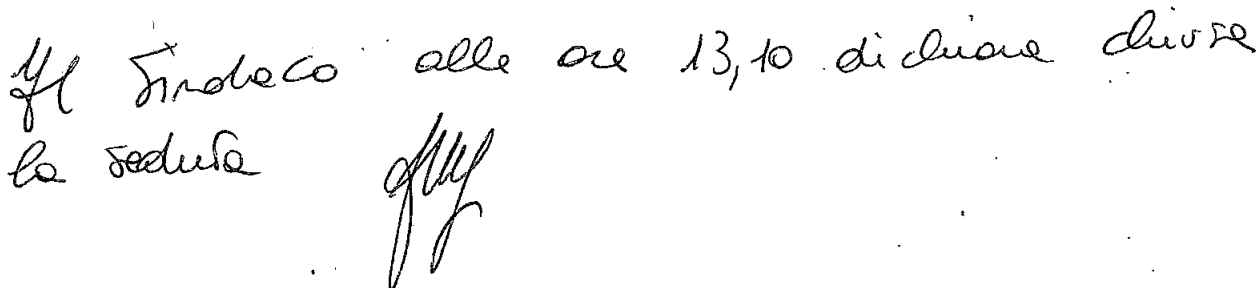 Il Sindaco alle ore 13,10 dichiara chiusa
la seduta